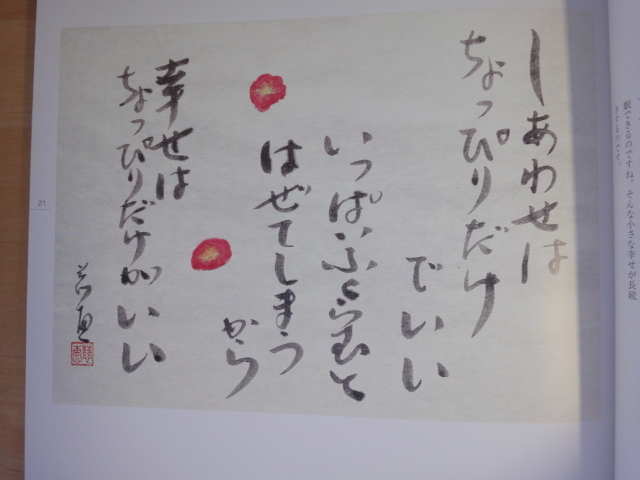 しあわせは
ちょっぴりだけ
でいい
いっぱいふくらむと
はぜてしまう
から
幸せは
ちょっぴりだけがいい
21
眠できるのですね。そんな小さな幸せが長続
きするのです。